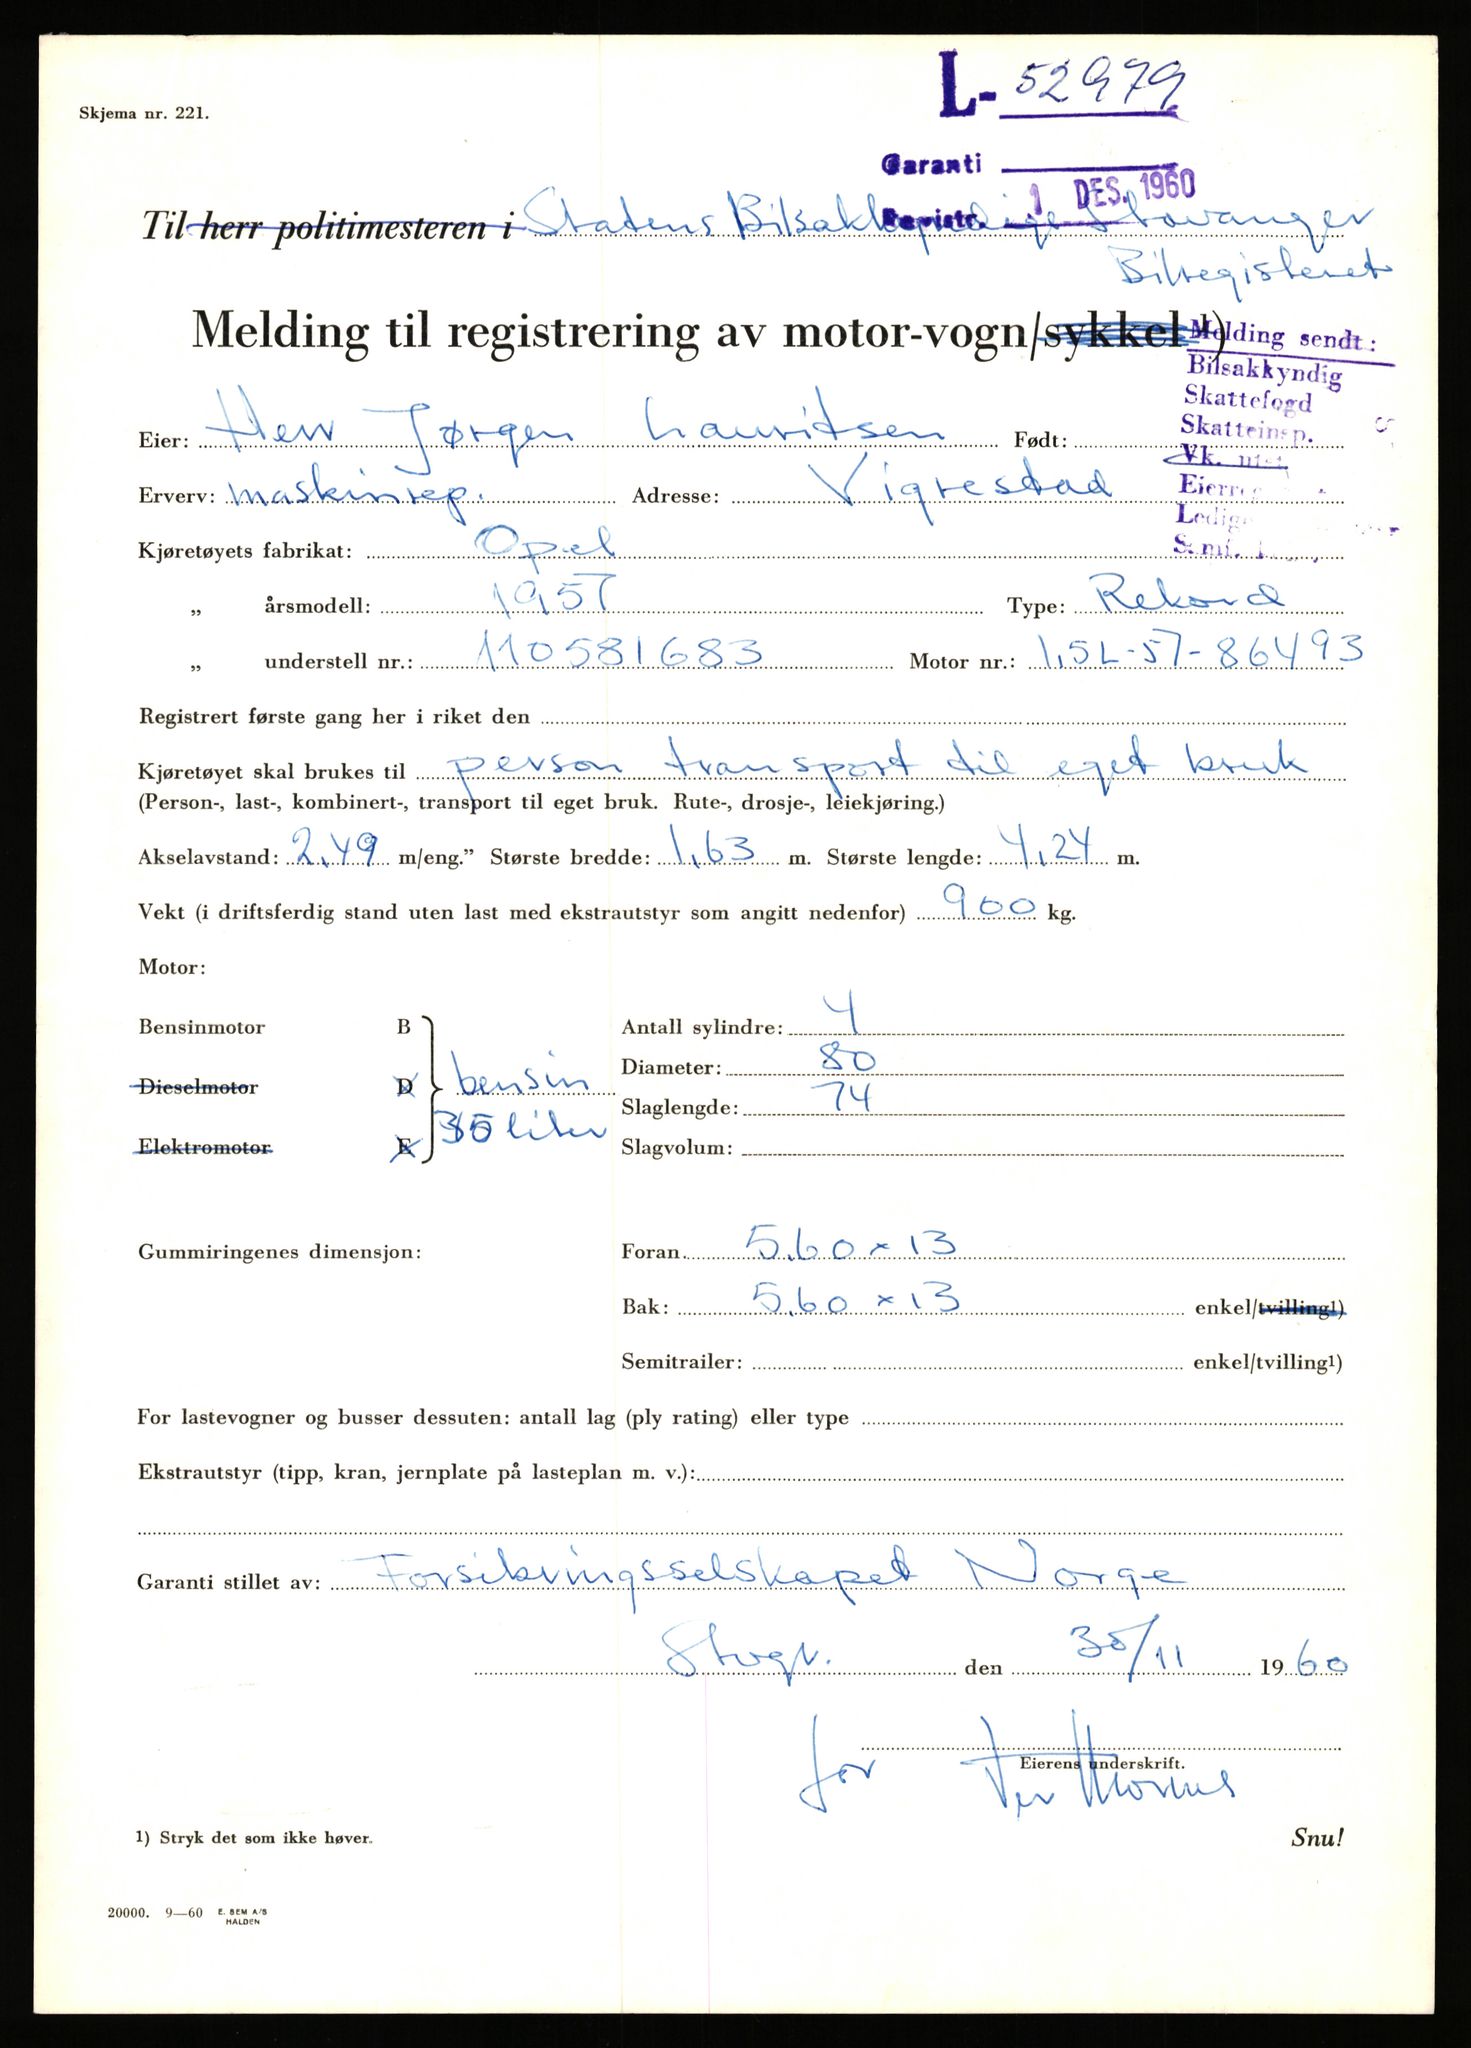 L- 52979
Skjema nr. 221.
Garanti
Registr. 1 DES. 1960
Til herr politimesteren i Statens Bilsakkyndige Stavanger
Bilregisteret
Melding til registrering av motor-vogn/sykkel¹)
Melding sendt:
Bilsakkyndig
Skattefogd
Skatteinsp.
Vk.
Eier: Herr Jørgen Lauritsen Født:
Erverv: maskinrep. Adresse: Vigrestad
Kjøretøyets fabrikat: Opel
„ årsmodell: 1957 Type: Rekord
„ understell nr.: 110581683 Motor nr.: 1,5L-57-86493
Registrert første gang her i riket den
Kjøretøyet skal brukes til person transport til eget bruk
(Person-, last-, kombinert-, transport til eget bruk. Rute-, drosje-, leiekjøring.)
Akselavstand: 2,49 m/eng.” Største bredde: 1,63 m. Største lengde: 4,24 m.
Vekt (i driftsferdig stand uten last med ekstrautstyr som angitt nedenfor) 900 kg.
Motor:
Bensinmotor B Antall sylindre: 4
Diameter: 80
Dieselmotor D bensin
Slaglengde: 74
35 liter
Elektromotor E Slagvolum:
Gummiringenes dimensjon: Foran 5,60 × 13
Bak: 5,60 × 13 enkel/tvilling¹)
Semitrailer: enkel/tvilling¹)
For lastevogner og busser dessuten: antall lag (ply rating) eller type
Ekstrautstyr (tipp, kran, jernplate på lasteplan m. v.):
Garanti stillet av: Forsikringsselskapet Norge
Stvgr. den 30/11 1960
Eierens underskrift.
for Per
1) Stryk det som ikke høver.
Snu!
20000. 9—60 E. SEM A/S
HALDEN